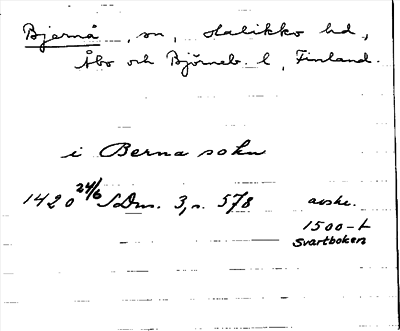 Bjernå, sn, Halikko hd,
Åbo och Björneb. l, Finland.
i Berna sokn
1420 24/6 SDns. 3, s. 578 avskr.
1500-t
Svartboken